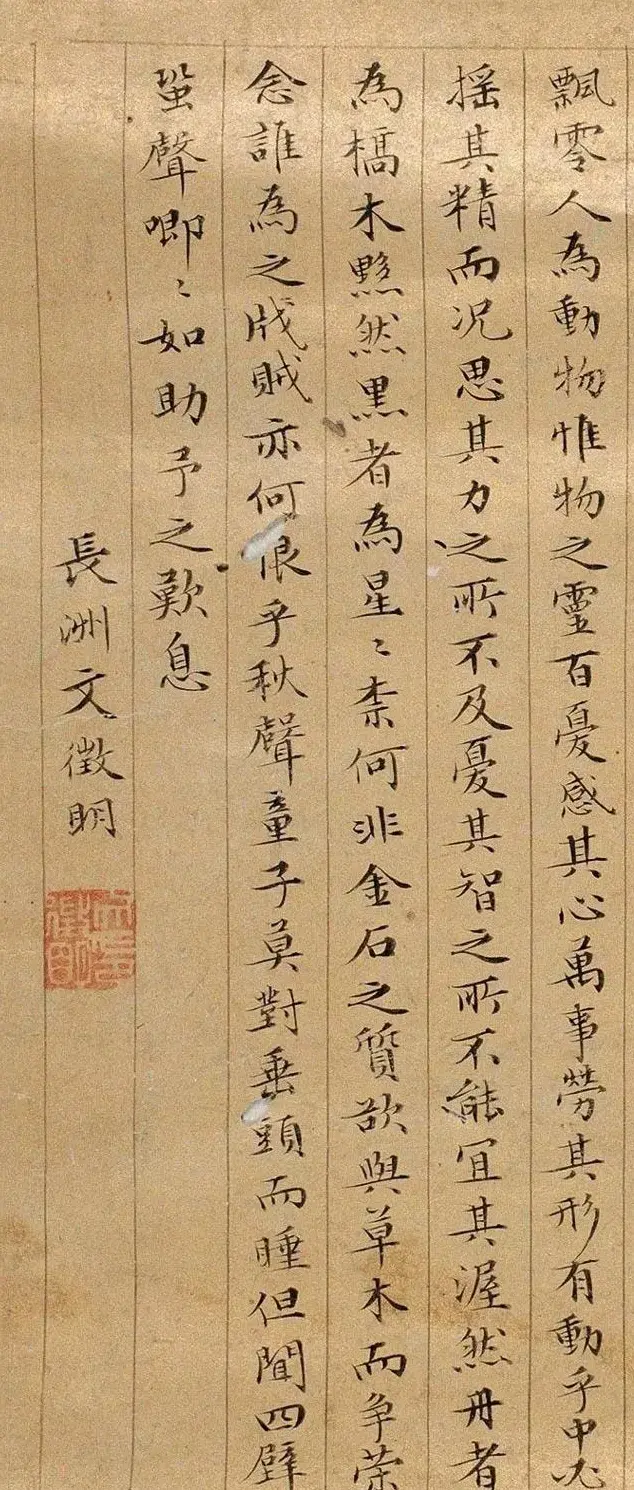 飄零人為動物惟物之靈百憂感其心萬事勞其形有動乎中必
搖其精而况思其力之所不及憂其智之所不能宜其渥然丹者
為槁木黟然黒者為星〻柰何非金石之質欲與草木而争荣
念誰為之戕賊亦何恨乎秋聲童子莫對垂頭而睡但聞四壁
蛩聲唧〻如助予之歎息
長洲文徵明
文徵明印